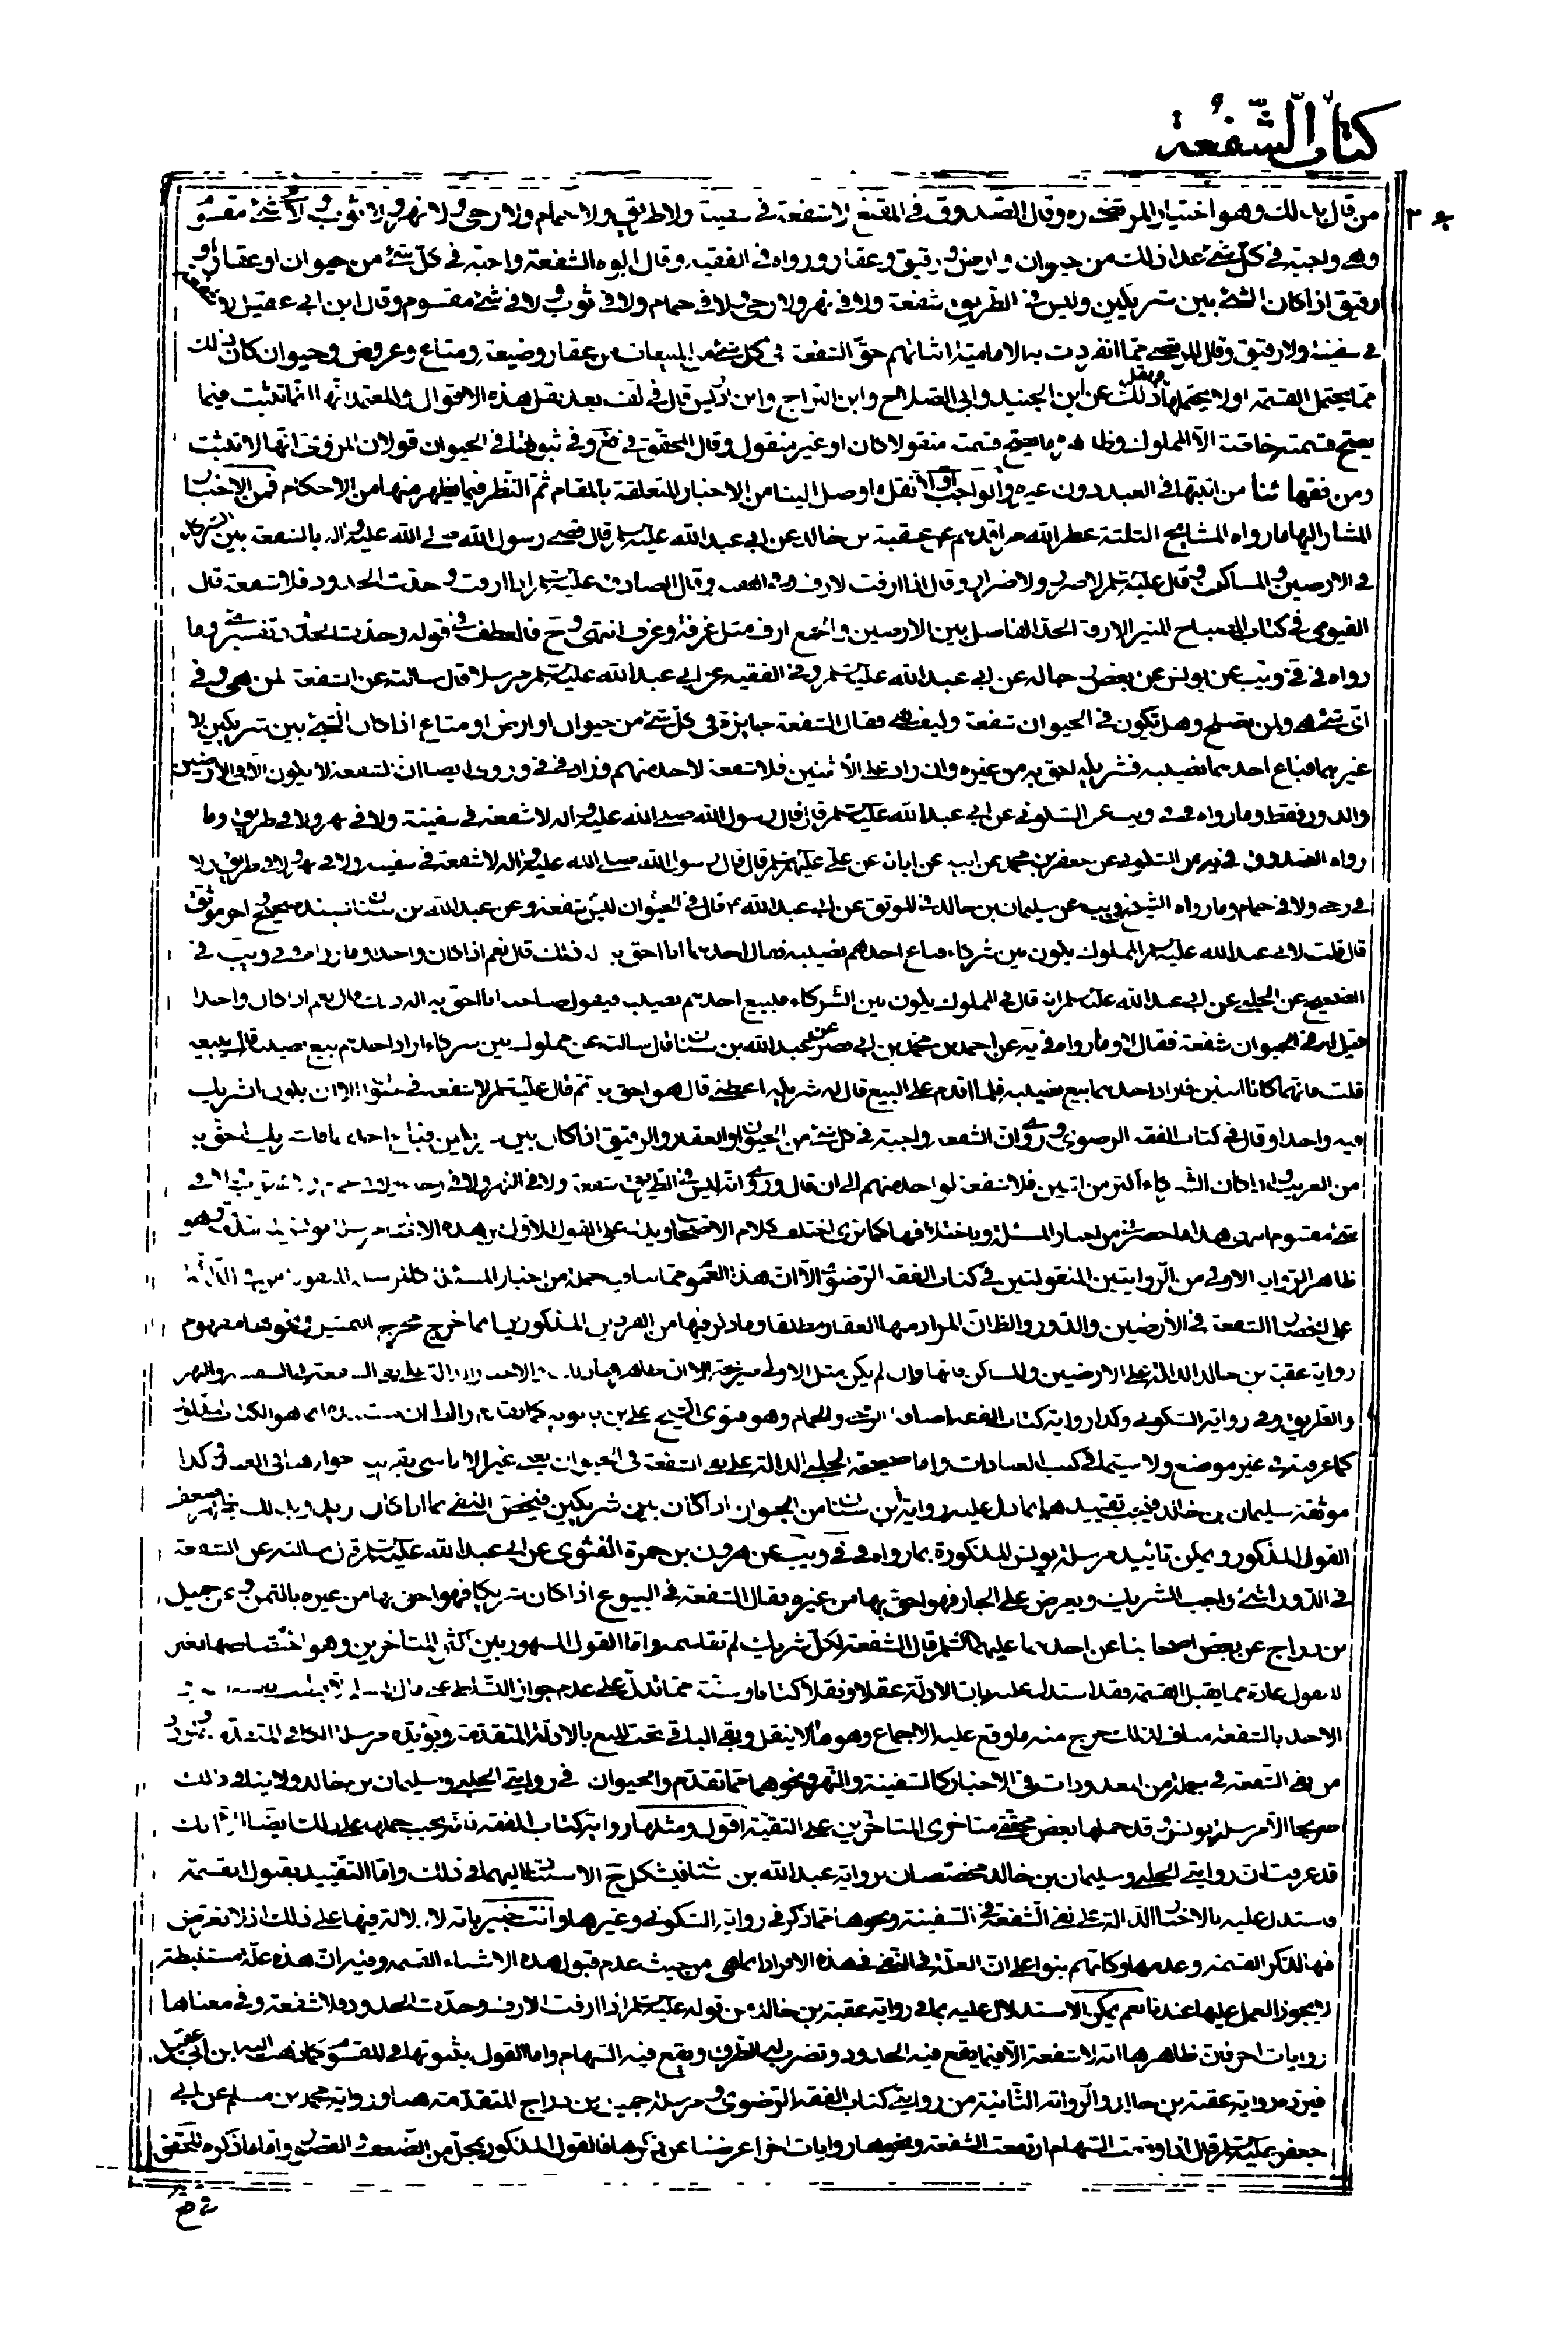 كتاب الشفعة
من قال بذلك وهو اختيار المرتضى ره وقال الصدوق في المقنع لا شفعة في سفينة ولا طريق ولا حمام ولا رحى ولا نهر ولا ثوب ولا شئ مقسوم
وهي واجبة في كل شئ عدا ذلك من حيوان وارض ورقيق وعقار ورواه في الفقيه وقال ابوه الشفعة واجبة في كل شئ من حيوان او عقار او
رقيق اذا كان الشئ بين شريكين وليس في الطريق شفعة ولا في نهر ولا رحى ولا في حمام ولا في ثوب ولا في شئ مقسوم وقال ابن ابي عقيل لا شفعة
في سفينة ولا رقيق وقال المرتضى مما انفردت به الامامية اثباتهم حق الشفعة في كل شئ من المبيعات من عقار وضيعة ومتاع وعروض وحيوان كان ذلك
مما يحتمل القسمة او لا يحتملها ونقل ذلك عن ابن الجنيد وابي الصلاح وابن البراج وابن ادريس قال في لف بعد نقل هذه الاقوال والمعتمد انها انما تثبت فيما
يصح قسمته خاصة الا المملوك وظاهره ما يصح قسمته منقولا كان او غير منقول وقال المحقق في فع وفي ثبوتها في الحيوان قولان المروي انها لا تثبت
ومن فقهائنا من اثبتها في العبد دون غيره والواجب اولا نقل ما وصل الينا من الاخبار المتعلقة بالمقام ثم النظر فيما يظهر منها من الاحكام فمن الاخبار
المشار اليها ما رواه المشايخ الثلثة عطر الله مراقدهم عن عقبة بن خالد عن ابي عبد الله عليه السلم قال قضى رسول الله صلى الله عليه واله بالشفعة بين الشركاء
في الارضين والمساكن وقال عليه السلم لا ضرر ولا ضرار وقال اذا ارفت الارف وقال الصادق عليه السلم اذا ارفت وحدت الحدود فلا شفعة قال
الفيومي في كتاب المصباح المنير الارفة الحد الفاصل بين الارضين والجمع ارف مثل غرفة وغرف انتهى وح فالعطف في قوله وحدت الحدود تفسيري وما
رواه في في ويب عن يونس عن بعض رجاله عن ابي عبد الله عليه السلم وفي الفقيه عن ابي عبد الله عليه السلم مرسلا قال سالته عن الشفعة لمن هي وفي
اي شئ هي ولمن تصلح وهل تكون في الحيوان شفعة وكيف هي فقال الشفعة جايزة في كل شئ من حيوان او ارض او متاع اذا كان الشئ بين شريكين لا
غيرهما فباع احدهما نصيبه فشريكه احق به من غيره وان زاد على الاثنين فلا شفعة لاحد منهم وزاد في في وروى ايضا ان الشفعة لا يكون الا في الارضين
والدور فقط وما رواه في في ويب عن السكوني عن ابي عبد الله عليه السلم قال قال رسول الله صلى الله عليه واله لا شفعة في سفينة ولا في نهر ولا في طريق وما
رواه الصدوق في يه عن السكوني عن جعفر بن محمد عن ابيه عن ابائه عن علي عليهم السلم قال قال رسول الله صلى الله عليه واله لا شفعة في سفينة ولا في نهر ولا في طريق ولا
في رحى ولا في حمام وما رواه الشيخ في يب عن سليمان بن خالد في الموثق عن ابي عبد الله ع قال في الحيوان ليس شفعة وعن عبد الله بن سنان بسند صحيح واخر موثق
قال قلت لابي عبد الله عليه السلم المملوك يكون بين شركاء فباع احدهم نصيبه فقال احدهما انا احق به اله ذلك قال نعم اذا كان واحدا وما رواه في في ويب في
الصحيح عن الحلبي عن ابي عبد الله عليه السلم انه قال في المملوك يكون بين الشركاء فيبيع احدهم نصيبه فيقول صاحبه انا احق به اله ذلك قال نعم اذا كان واحدا
فقيل له في الحيوان شفعة فقال لا وما رواه في يه عن احمد بن محمد بن ابي نصر عن عبد الله بن سنان قال سالته عن مملوك بين شركاء اراد احدهم بيع نصيبه قال يبيعه
قلت فانهما كانا اثنين فاراد احدهما بيع نصيبه فلما اقدم على البيع قال له شريكه اعطني قال هو احق به ثم قال عليه السلم لا شفعة في حيوان الا ان يكون الشريك
فيه واحدا وقال في كتاب الفقه الرضوي وروى ان الشفعة واجبة في كل شئ من الحيوان والعقار والرقيق اذا كان بين شريكين فباع احدهما فالشريك احق به
من الغريب واذا كان الشركاء اكثر من اثنين فلا شفعة لواحد منهم الى ان قال وروى انه ليس في الطريق شفعة ولا في النهر ولا في رحى
شئ مقسوم هذا ما حضرني من اخبار المسئلة وباختلافها كما ترى اختلف كلام الاصحاب ويدل على القول الاول من هذه الاخبار مرسلة يونس وهو
ظاهر الرواية الاولى من الروايتين المنقولتين في كتاب الفقه الرضوي الا ان هذا العموم مما ينافيه جملة من اخبار المسئلة
على اختصاص الشفعة في الارضين والدور والظ ان المراد منها العقار مطلقا وما ذكر فيها من الفردين المذكورين انما خرج مخرج التمثيل ونحوها مفهوم
رواية عقبة بن خالد الدالة على الارضين والمساكن فانها وان لم يكن مثل الاولى
والطريق وفي رواية السكوني وكذا رواية كتاب الفقه اضاف الرحى والحمام وهو فتوى الشيخ علي بن بابويه كما تقدم
كما عرفته في غير موضع ولا سيما في كتب العبادات واما صحيحة الحلبي الدالة على نفي الشفعة في الحيوان
موثقة سليمان بن خالد فيجب تقييدهما بما دل عليه رواية ابن سنان من الحيوان اذا كان بين شريكين فيختص النفي بما اذا كان
القول المذكور ويمكن تاييد مرسلة يونس المذكورة بما رواه في في ويب عن هرون بن حمزة الغنوي عن ابي عبد الله عليه السلم قال سالته عن الشفعة
في الدور اشئ واجب للشريك ويعرض على الجار فهو احق بها من غيره فقال الشفعة في البيوع اذا كان شريكا فهو احق بها من غيره بالثمن وعن جميل
بن دراج عن بعض اصحابنا عن احدهما عليهما السلم قال الشفعة لكل شريك لم تقاسمه واما القول المشهور بين اكثر المتاخرين وهو اختصاصها بغير
المنقول عادة مما يقبل القسمة فقد استدل عليه بان الادلة عقلا ونقلا كتابا وسنة مما تدل على عدم جواز التسلط على مال
الاخذ بالشفعة مناف لذلك خرج منه ما وقع عليه الاجماع وهو ما لا ينقل وبقي الباقي تحت المنع بالادلة المتقدمة ويؤيده مرسلة الكافي المتقدمة
من نفي الشفعة في جملة من المعدودات في الاخبار كالسفينة والنهر ونحوهما مما تقدم والحيوان في روايتي الحلبي وسليمان بن خالد ولا ينافي ذلك
صريحا الا مرسلة يونس وقد حملها بعض محققي متاخري المتاخرين على التقية اقول ومثلها رواية كتاب الفقه فانه يجب حملها على ذلك ايضا
قد عرفت ان روايتي الحلبي وسليمان بن خالد مخصصتان برواية عبد الله بن سنان فيشكل ح الاستناد اليهما في ذلك واما التقييد بقبول القسمة
فاستدل عليه بالاخبار الدالة على نفي الشفعة في السفينة ونحوها مما ذكر في رواية السكوني وغيرها وانت خبير بانه لا دلالة فيها على ذلك اذ لا تعرض
فيها لذكر القسمة وعدمها وكانهم بنوا على ان العلة في النفي في هذه الافراد انما هي من حيث عدم قبول هذه الاشياء القسمة وفيه ان هذه علة مستنبطة
لا يجوز العمل عليها عندنا نعم يمكن الاستدلال عليه بما في رواية عقبة بن خالد من قوله عليه السلم اذا ارفت الارف وحدت الحدود فلا شفعة وفي معناها
روايات اخر فان ظاهرها انه لا شفعة الا فيما يقع فيه الحدود وتضرب له الطرق ويقع فيه السهام واما القول بثبوتها في المقسوم كما ذهب اليه ابن ابي عقيل
فيرده رواية عقبة بن خالد والرواية الثانية من روايتي كتاب الفقه الرضوي ومرسلة جميل بن دراج المتقدمة هنا ورواية محمد بن مسلم عن ابي
جعفر عليه السلم قال اذا وقعت السهام ارتفعت الشفعة ونحوها روايات اخر اعرضنا عن ذكرها فالقول المذكور بمحل من الضعف والقصور واما ما ذكره المحقق